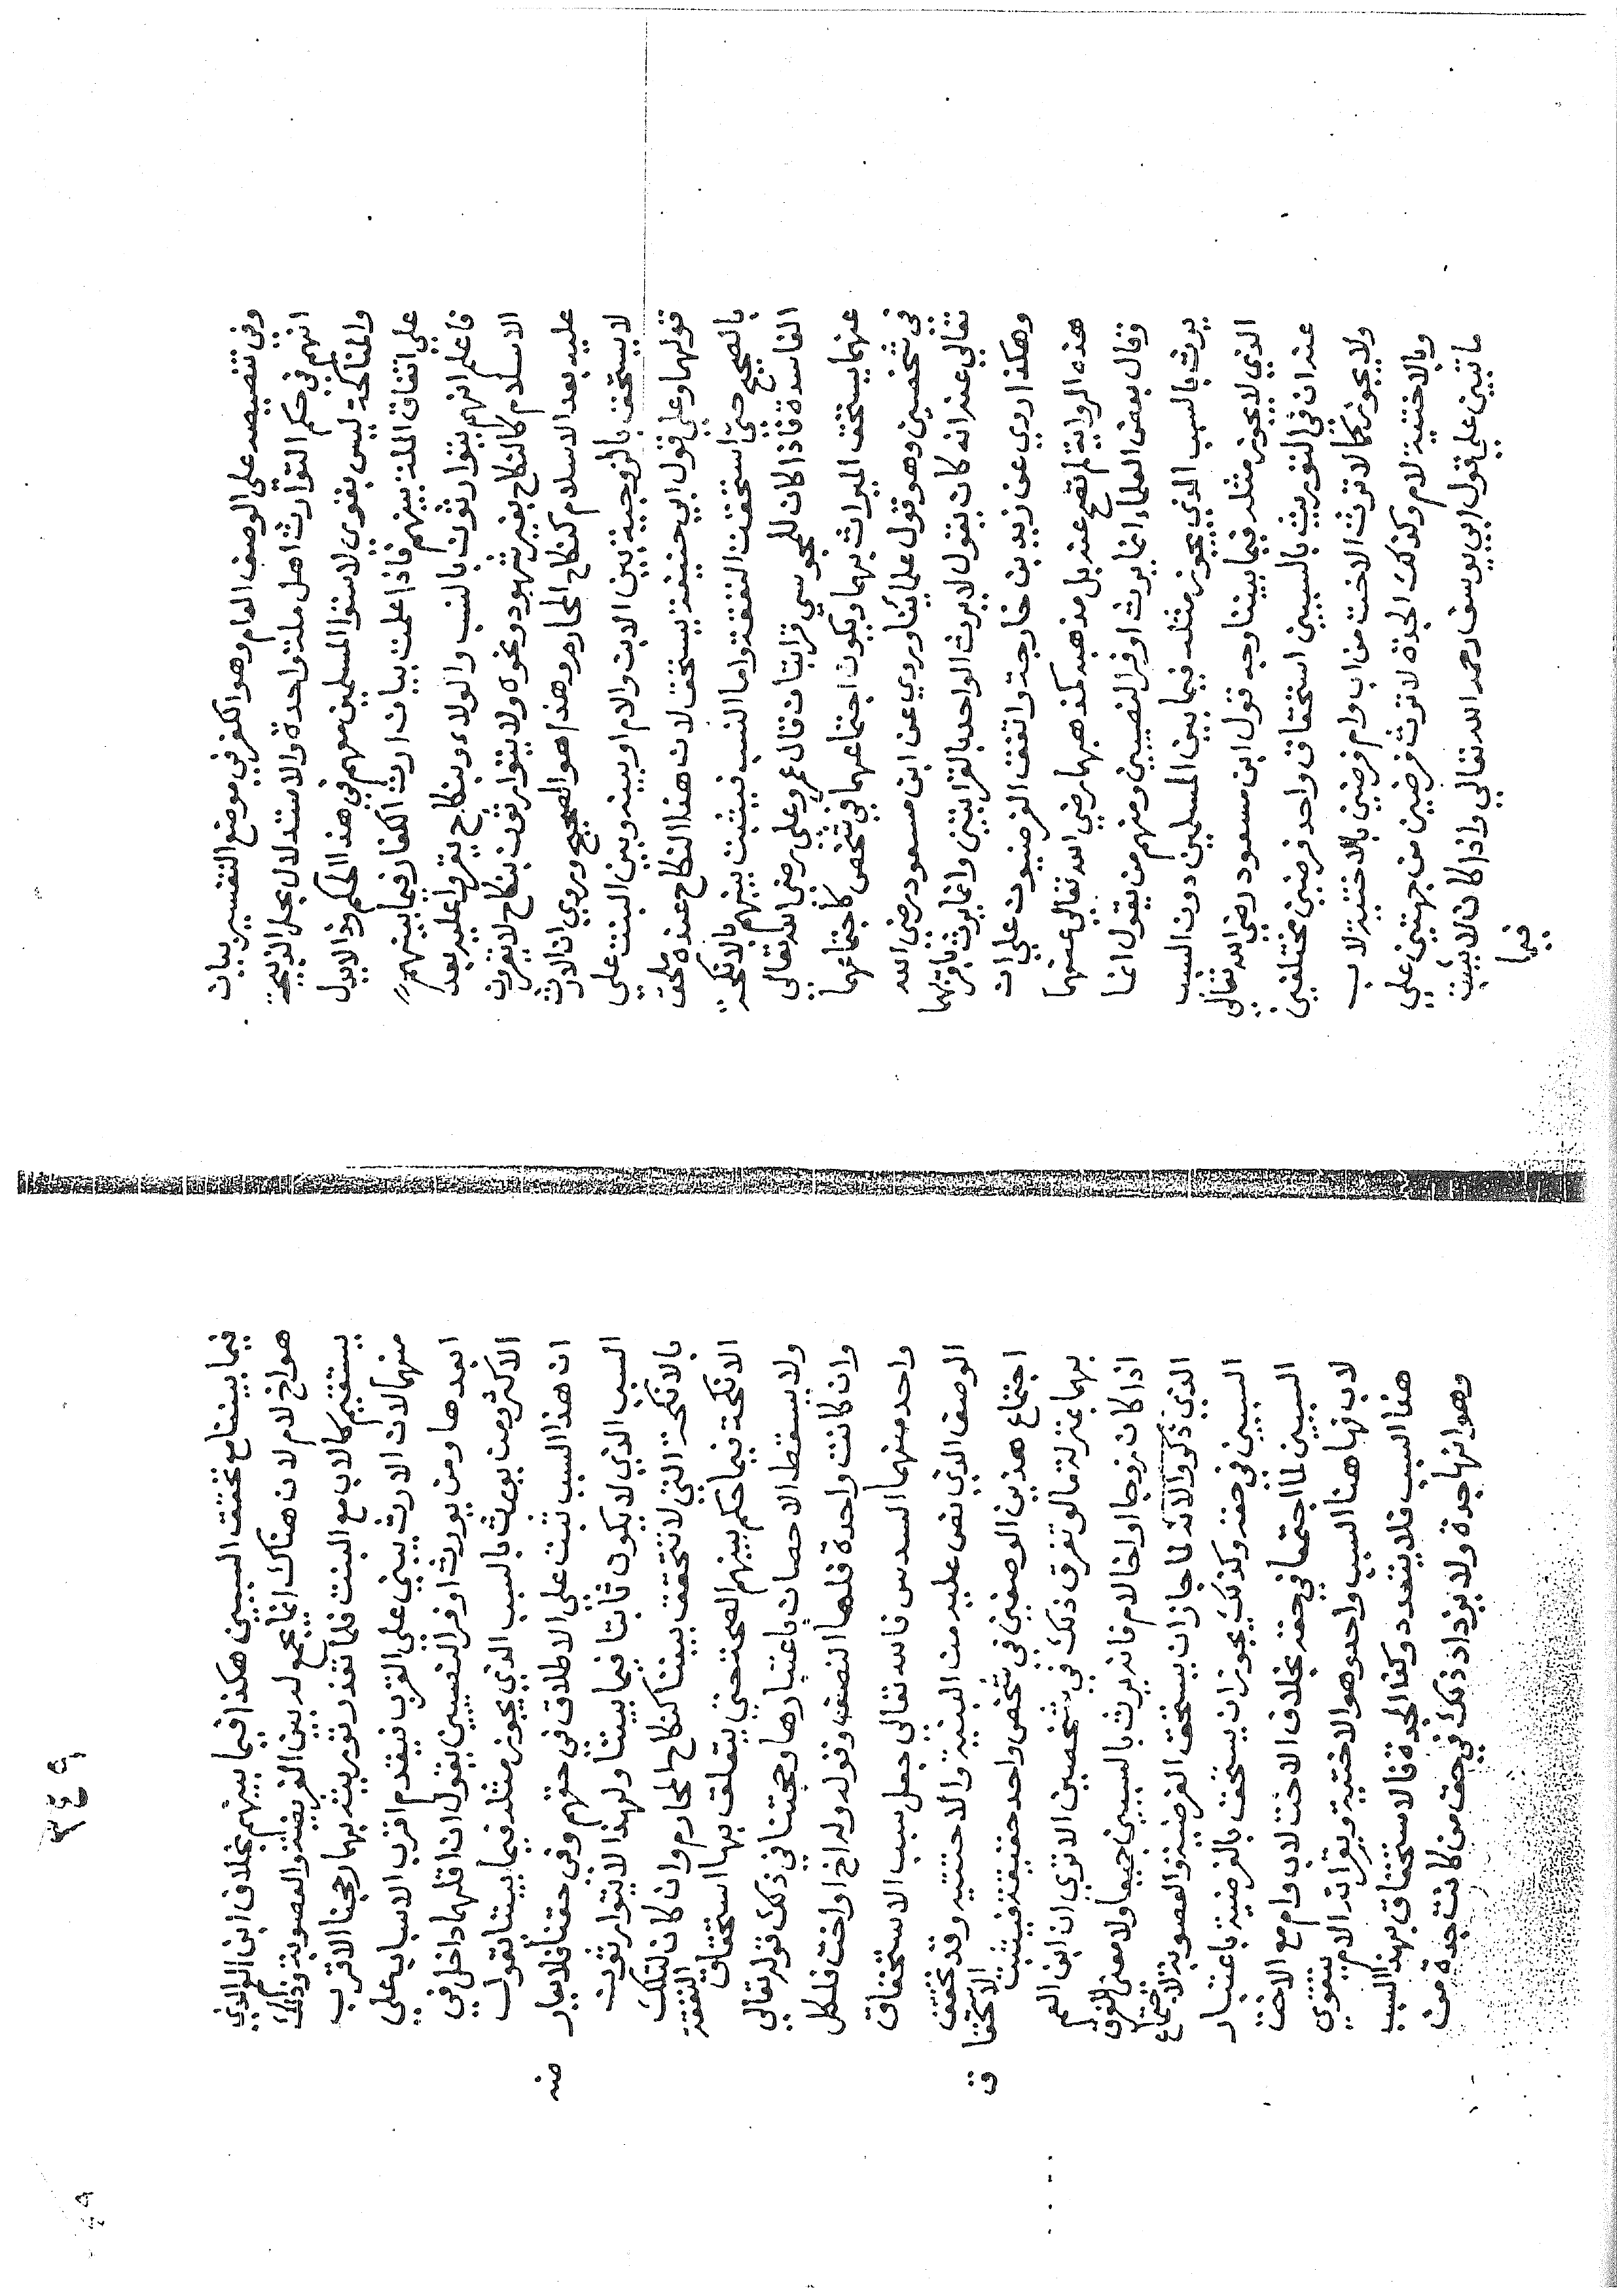 وفي تنصيصه على الوصف العام وهو الكفر في موضع التفسير بيان
انهم في حكم التوارث اهل ملة واحدة والاستدلال بحل الذبيحة
والمناكحة ليس بقوي لاستوا المسلمين معهم في هذا الحكم وذا لا يدل
على اتفاق الملة بينهم فاذا علمت بيان ارث الكفار فيما بينهم
فاعلم انهم يتوارثون بالنسب والولاء وبنكاح يقروا عليه بعد
الاسلام كالنكاح بغير شهود ونحوه ولا يتوارثون بنكاح لا يقرون
عليه بعد الاسلام كنكاح المحارم وهذا هو الصحيح وروي ان الارث
لا يستحق بالزوجية بين الابن والام او بينه وبين البنت على
قولهما وعلى قول ابي حنيفة يستحق لان هذا النكاح عنده ملحق
بالصحيح حتى استحقت النفقة واما النسب فيثبت بينهم بالانكحة
الفاسدة فاذا كان للمجوسي قرابتان قال عمر وعلي رضي الله تعالى
عنهما يستحق الميراث بهما ويكون اجتماعهما في شخص كاجتماعهما
في شخصين وهو قول علمائنا وروي عن ابن مسعود رضي الله
تعالى عنه انه كان يقول لا يرث الواحد بالقرابتين وانما يرث باقربهما
وهكذا روي عن زيد بن خارجة واتفق الفرضيون على ان
هذه الرواية لم تصح عنه بل مذهبه كمذهبهما رضي الله تعالى عنهما
وقال بعض العلماء انما يرث اوفر النصيبين ومنهم من يقول انما
يرث بالسبب الذي يجوز مثله فيما بين المسلمين دون السبب
الذي لا يجوز مثله فيما بيننا وجه قول ابن مسعود رضي الله تعالى
عنه ان في التوريث بالسببين استحقاق واحد فرضين مختلفين
ولا يجوز كما لا ترث الاخت من اب وام فرضين بالاختية لاب
وبالاختية لام وكذلك الجدة لا ترث فرضين من جهتين على
ما تبين على قول ابي يوسف رحمه الله تعالى واذا كان لا يثبت
فيما
٣٤٩
فيما بيننا مع تحقق السببين هكذا فيما بينهم بخلاف ابن العم الذي
هو اخ لام لان هناك انما يجمع له بين الفريضة والعصوبة وذلك
يستقيم كالاب مع البنت فلما تعذر توريثه بهما رجحنا الاقرب
منهما لان الارث يبنى على القرب فيقدم اقرب الاسباب على
ابعدها ومن يورث اوفر النصيبين يقول ان اقلهما داخل في
الاكثر ومن يورث بالسبب الذي يجوز مثله فيما بيننا يقول
ان هذا السبب ثبت على الاطلاق في حقهم وفي حقنا فلا يعارضه
السبب الذي لا يكون ثابتا فيما بيننا ولهذا لا يتوارثون
بالانكحة التي لا تتحقق بيننا كنكاح المحارم وان كان لتلك
الانكحة فيما حكم بينهم الصحة حتى يتعلق بها استحقاق النفقة
ولا يسقط الاحصان باعتبارها وحجتنا في ذلك قوله تعالى
وان كانت واحدة فلها النصف وقوله وله اخ او اخت فلكل
واحد منهما السدس فالله تعالى جعل سبب الاستحقاق
الوصف الذي نص عليه من البنتية والاختية وقد تحقق
اجتماع هذين الوصفين في شخص واحد حقيقة فيثبت الاستحقاق
بهما بمنزلة ما لو تفرق ذلك في شخصين الا ترى ان ابن العم
اذا كان زوجا او اخا لام فانه يرث بالسببين جميعا ولا معنى للفرق
الذي ذكروا لانه لما جاز ان يستحق الفرضية والعصوبة لاجتماع
السببين في حقه وكذلك يجوز ان يستحق بالفرضية باعتبار
السببين لما اجتمعا في حقه بخلاف الاخت لاب وام مع الاخت
لاب فها هنا السبب واحد وهو الاختية وبقرابة الام يتقوى
هذا السبب فلا يتعدد وكذا الجدة فالاستحقاق بهذا السبب
وهو انها جدة ولا يزداد ذلك في حق من كانت جدة من